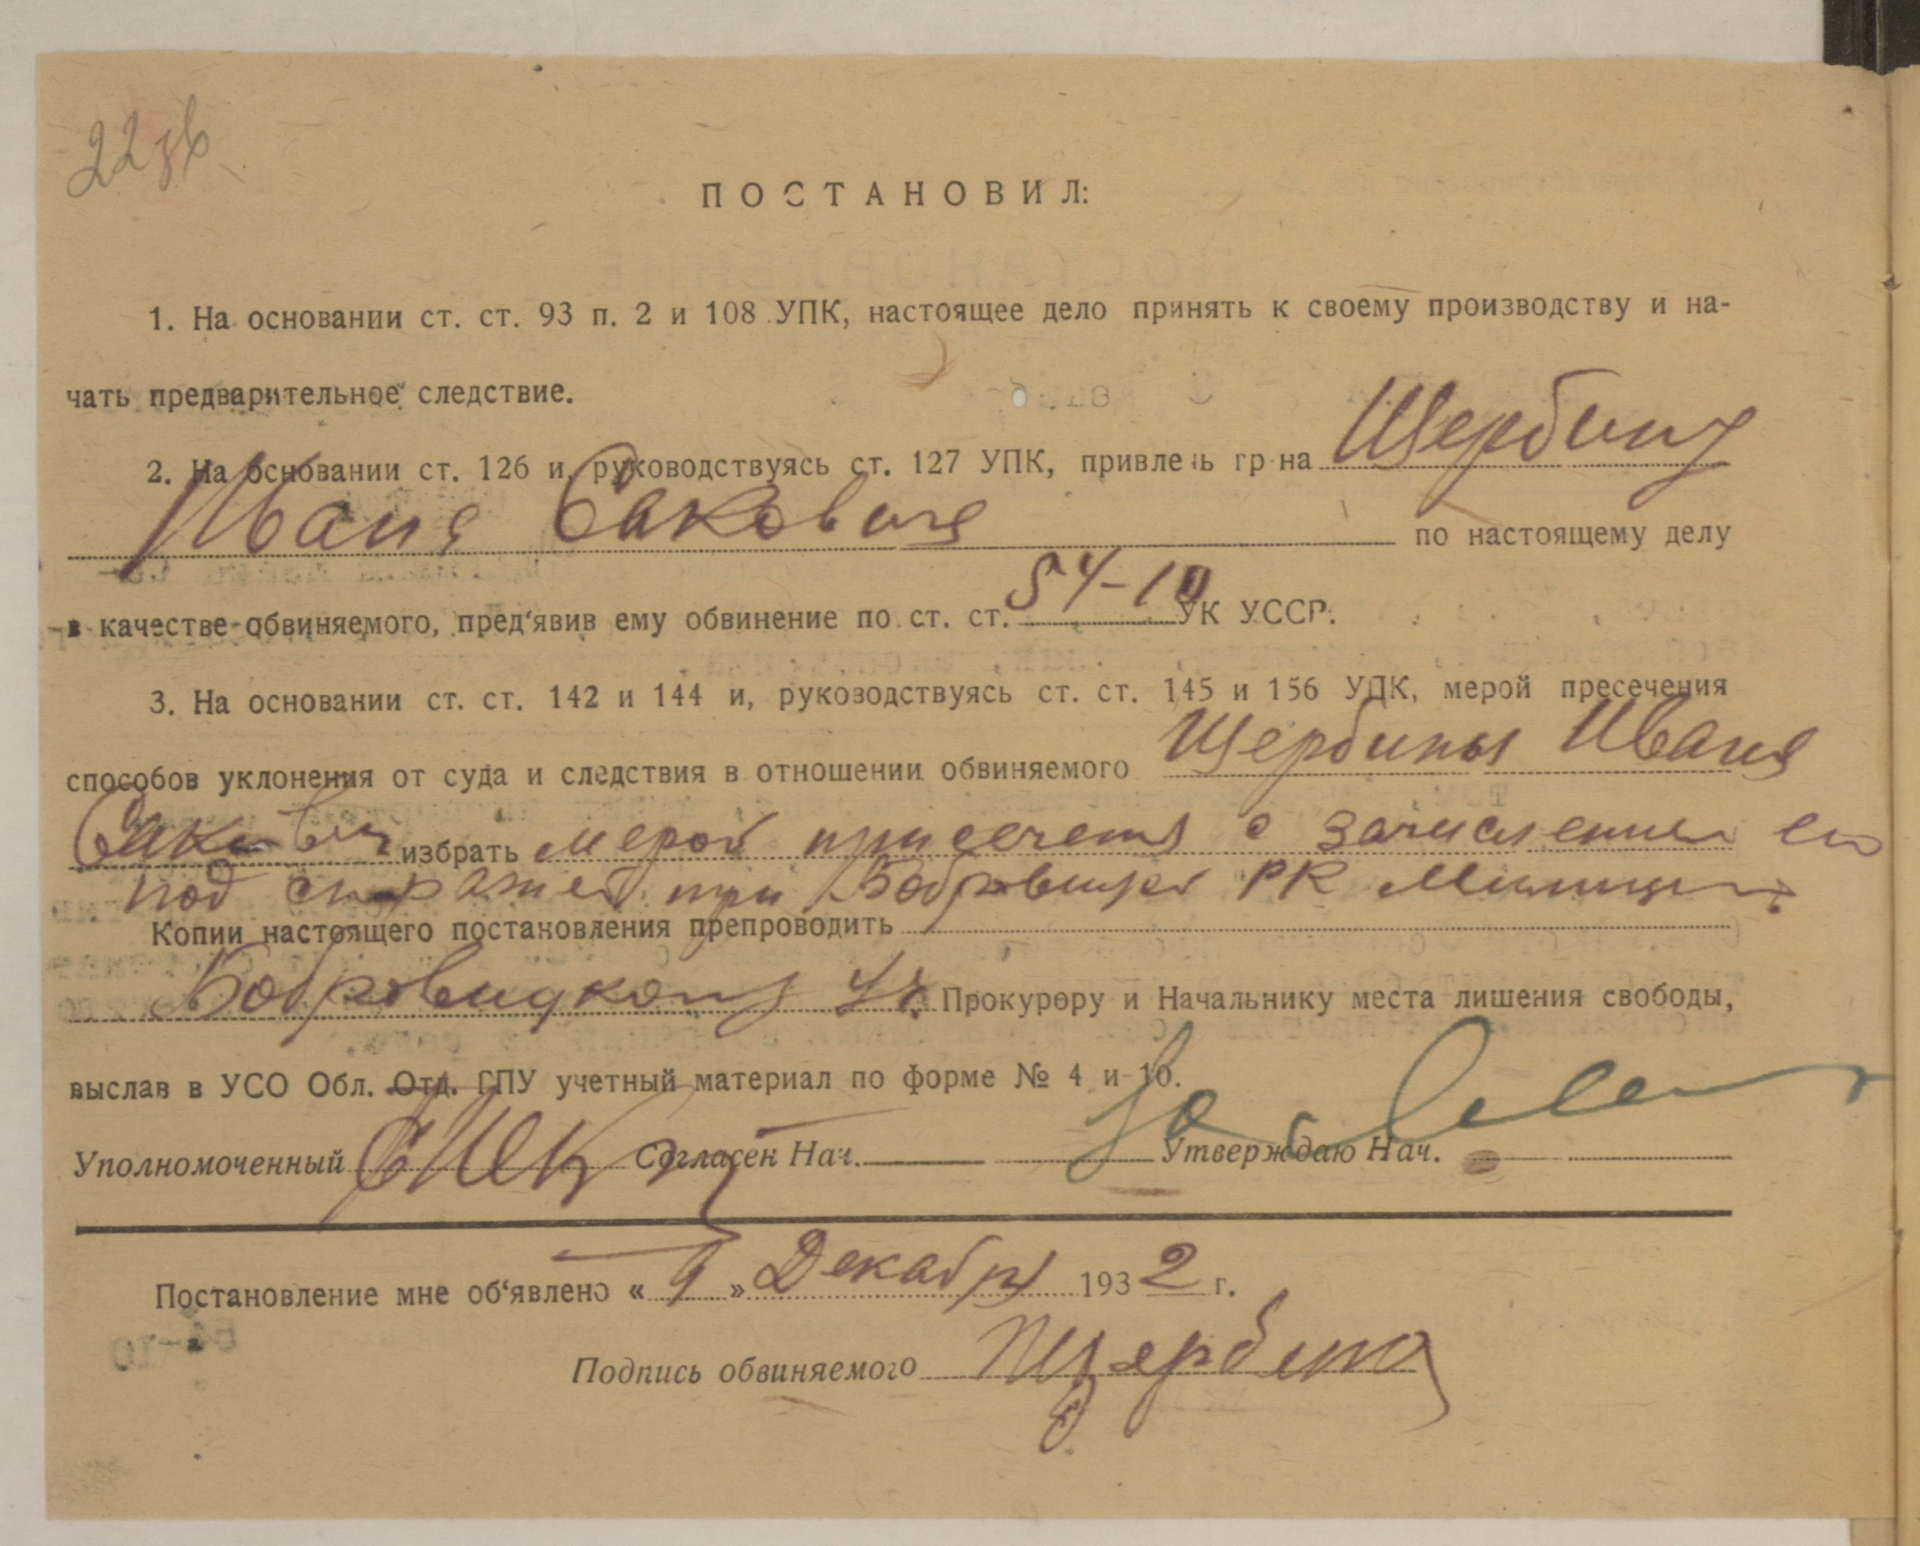 22 зв
ПОСТАНОВИЛ:
1. На основании ст. ст. 93 п. 2 и 108 УПК, настоящее дело принять к своему производству и на-
чать предварительное следствие.
2. На основании ст. 126 и, руководствуясь ст. 127 УПК, привлечь гр-на Щербину
Ивана Саковича по настоящему делу
в качестве обвиняемого, пред‘явив ему обвинение по ст. ст. 54-10 УК УССР.
3. На основании ст. ст. 142 и 144 и, руководствуясь ст. ст. 145 и 156 УПК, мерой пресечения
способов уклонения от суда и следствия в отношении обвиняемого Щербины Ивана
Саковича избрать мерой с зачислением его
под при РК Милиции
Копии настоящего постановления препроводить
Бобровицкому Уч. Прокурору и Начальнику места лишения свободы,
выслав в УСО Обл. Отд. ГПУ учетный материал по форме № 4 и 10.
Уполномоченный Согласен Нач. Утверждаю Нач.
Постановление мне об‘явлено « 9 » Декабря 1932 г.
Подпись обвиняемого Щербина